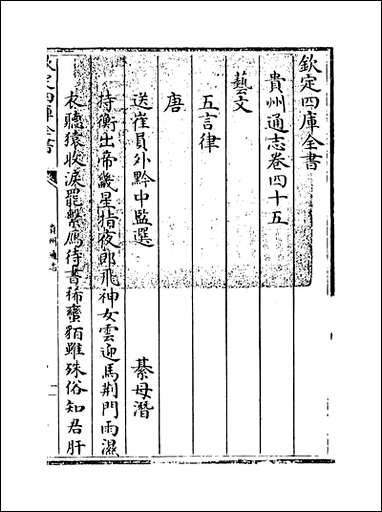 欽定四庫全書
貴州通志卷四十五
藝文
五言律
唐
送崔員外黔中監選　綦母潛
持衡出帝畿星指夜郎飛神女雲迎馬荆門雨濕
衣聽猿收淚罷繫鴈待書稀蠻貊雖殊俗知君肝
欽定四庫全書
貴州通志
一